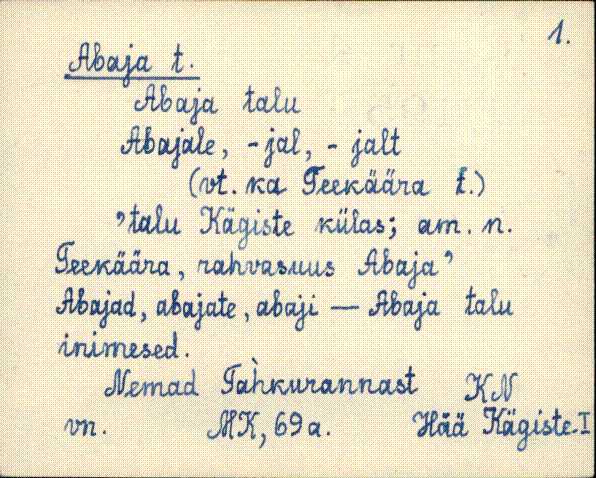 1.
Abaja t.
Abaja talu
Abajale, -jal, - jalt
(vt. ka Teekäära t.)
ˮtalu Kägiste külas; am. n.
Teekäära, rahvasuus Abajaˮ
Abajad, abajate, abaji — Abaja talu
inimesed.
Nemad Tàhkurannast KN
vn. MK, 69a. Hää Kägiste I